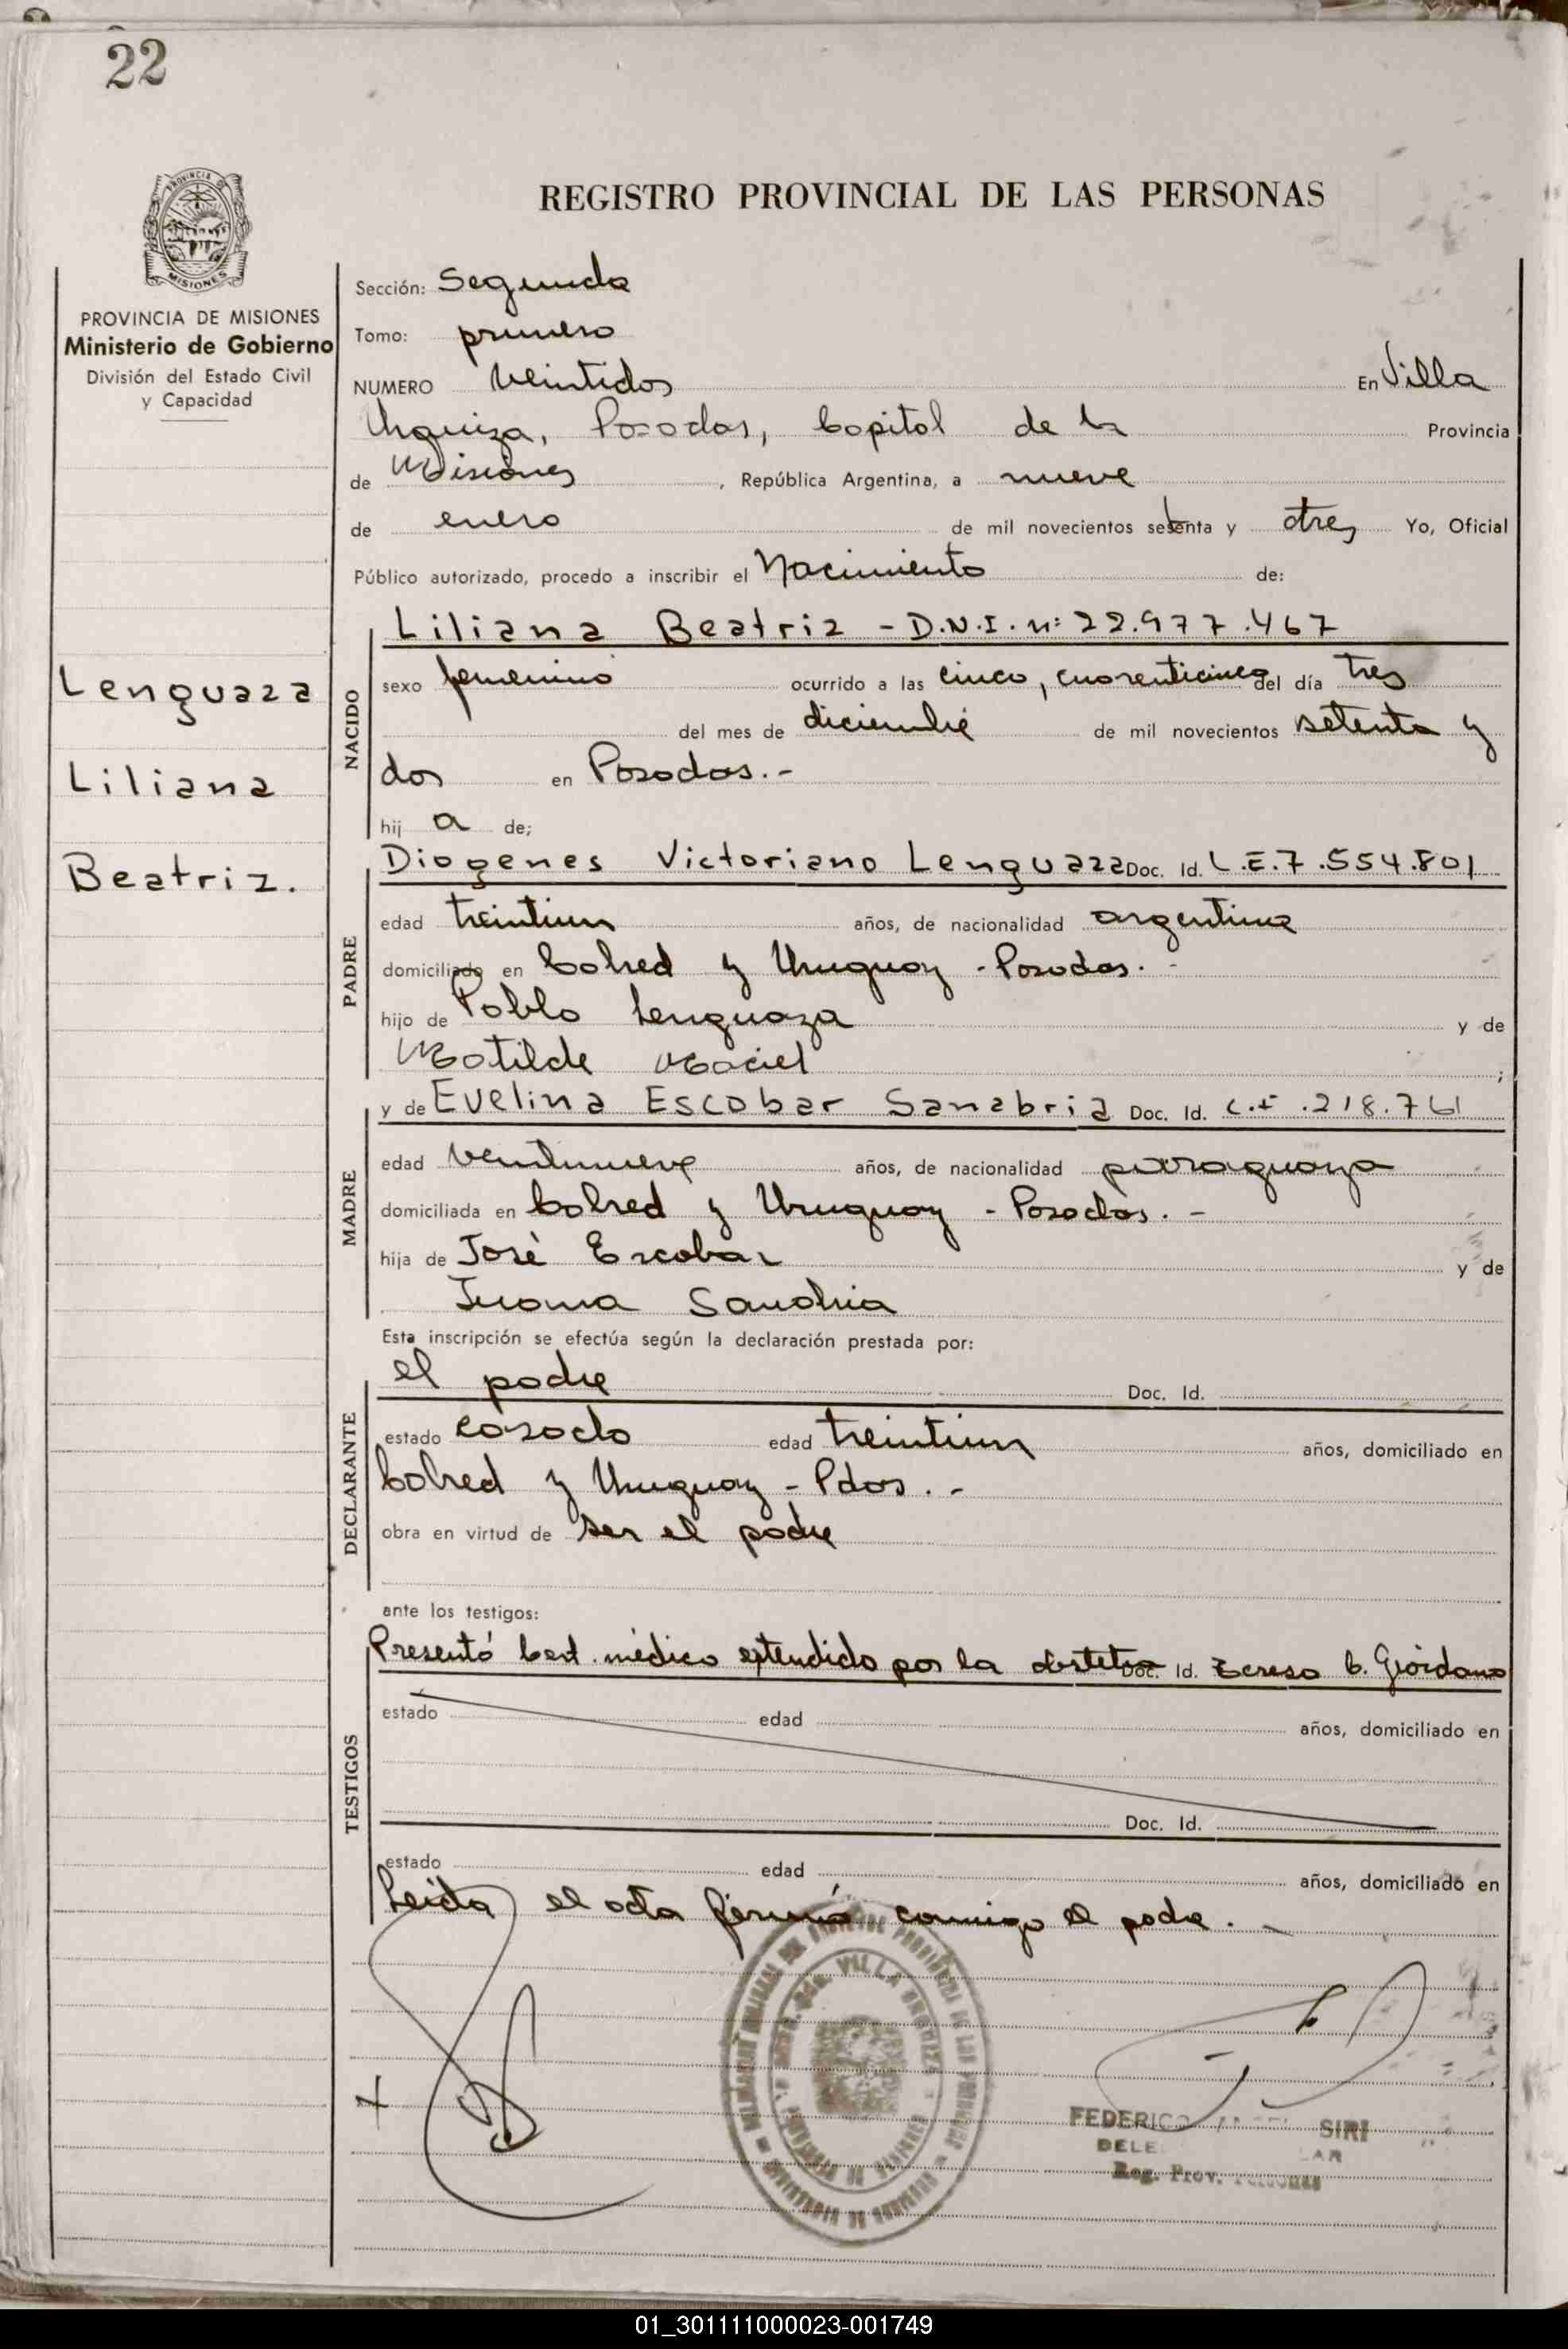 22
REGISTRO PROVINCIAL DE LAS PERSONAS
PROVINCIA
MISIONES
PROVINCIA DE MISIONES
Ministerio de Gobierno
División del Estado Civil
y Capacidad
Lenguaza
Liliana
Beatriz.
Sección: Segunda
Tomo: primero
NUMERO veintidos En Villa
Urquiza, Posadas, Capital de la Provincia
de Misiones, República Argentina, a nueve
de enero de mil novecientos setenta y tres Yo, Oficial
Público autorizado, procedo a inscribir el Nacimiento de:
NACIDO
Liliana Beatriz - D.N.I. nº 22.977.467
sexo femenino ocurrido a las cinco, cuarenticinco del día tres
del mes de diciembre de mil novecientos setenta y
dos en Posadas.-
hij a de;
PADRE
Diogenes Victoriano Lenguaza Doc. Id. L.E.7.554.801
edad treintiun años, de nacionalidad argentina
domiciliado en Colred y Uruguay - Posadas.-
hijo de Pablo Lenguaza y de
Matilde Maciel ;
MADRE
y de Evelina Escobar Sanabria Doc. Id. .218.761
edad veintinueve años, de nacionalidad paraguaya
domiciliada en Colred y Uruguay - Posadas.-
hija de José Escobar y de
Juana Sanabria
Esta inscripción se efectúa según la declaración prestada por:
DECLARANTE
el padre Doc. Id.
estado casado edad treintiun años, domiciliado en
Colred y Uruguay - Pdas.-
obra en virtud de ser el padre
ante los testigos:
TESTIGOS
Presentó Cert. médico extendido por la obstetra Doc. Id. Teresa C. Giordano
estado edad años, domiciliado en
Doc. Id.
estado edad años, domiciliado en
Leida el acta firmó conmigo el padre.-
VILLA URQUIZA
FEDERICO SIRI
DELE AR
Reg. Prov. Personas
01_301111000023-001749